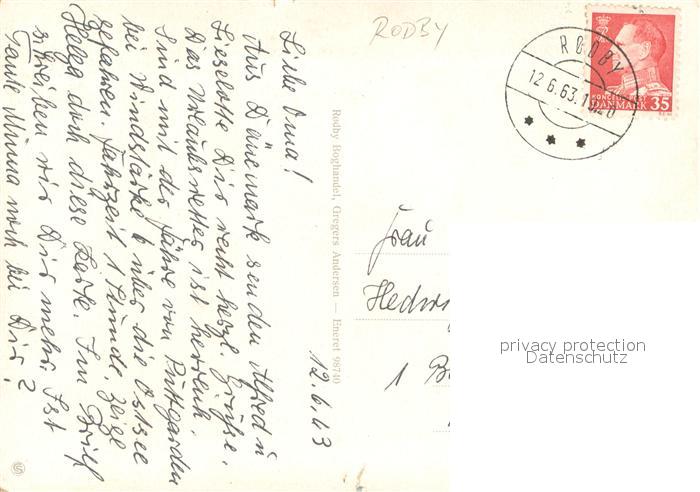 RODBY
RØDBY
12.6.63.1920
KONGERIGET
DANMARK 35
12.6.63
Liebe Oma!
Aus Dänemark senden Alfred u
Lieselotte Dir recht herzl. Grüße.
Das Urlaubswetter ist herrlich.
Sind mit der Fähre von Puttgarden
bei Windstärke 6 über die Ostsee
gefahren. Fahrzeit 1 Stunde. Zeige
Helga doch diese Karte. Im Brief
schreiben wir Dir mehr. Ist
Tante Minna noch bei Dir?
Rødby Boghandel, Gregers Andersen — Eneret 98740
Frau
1 B
privacy protection
Datenschutz